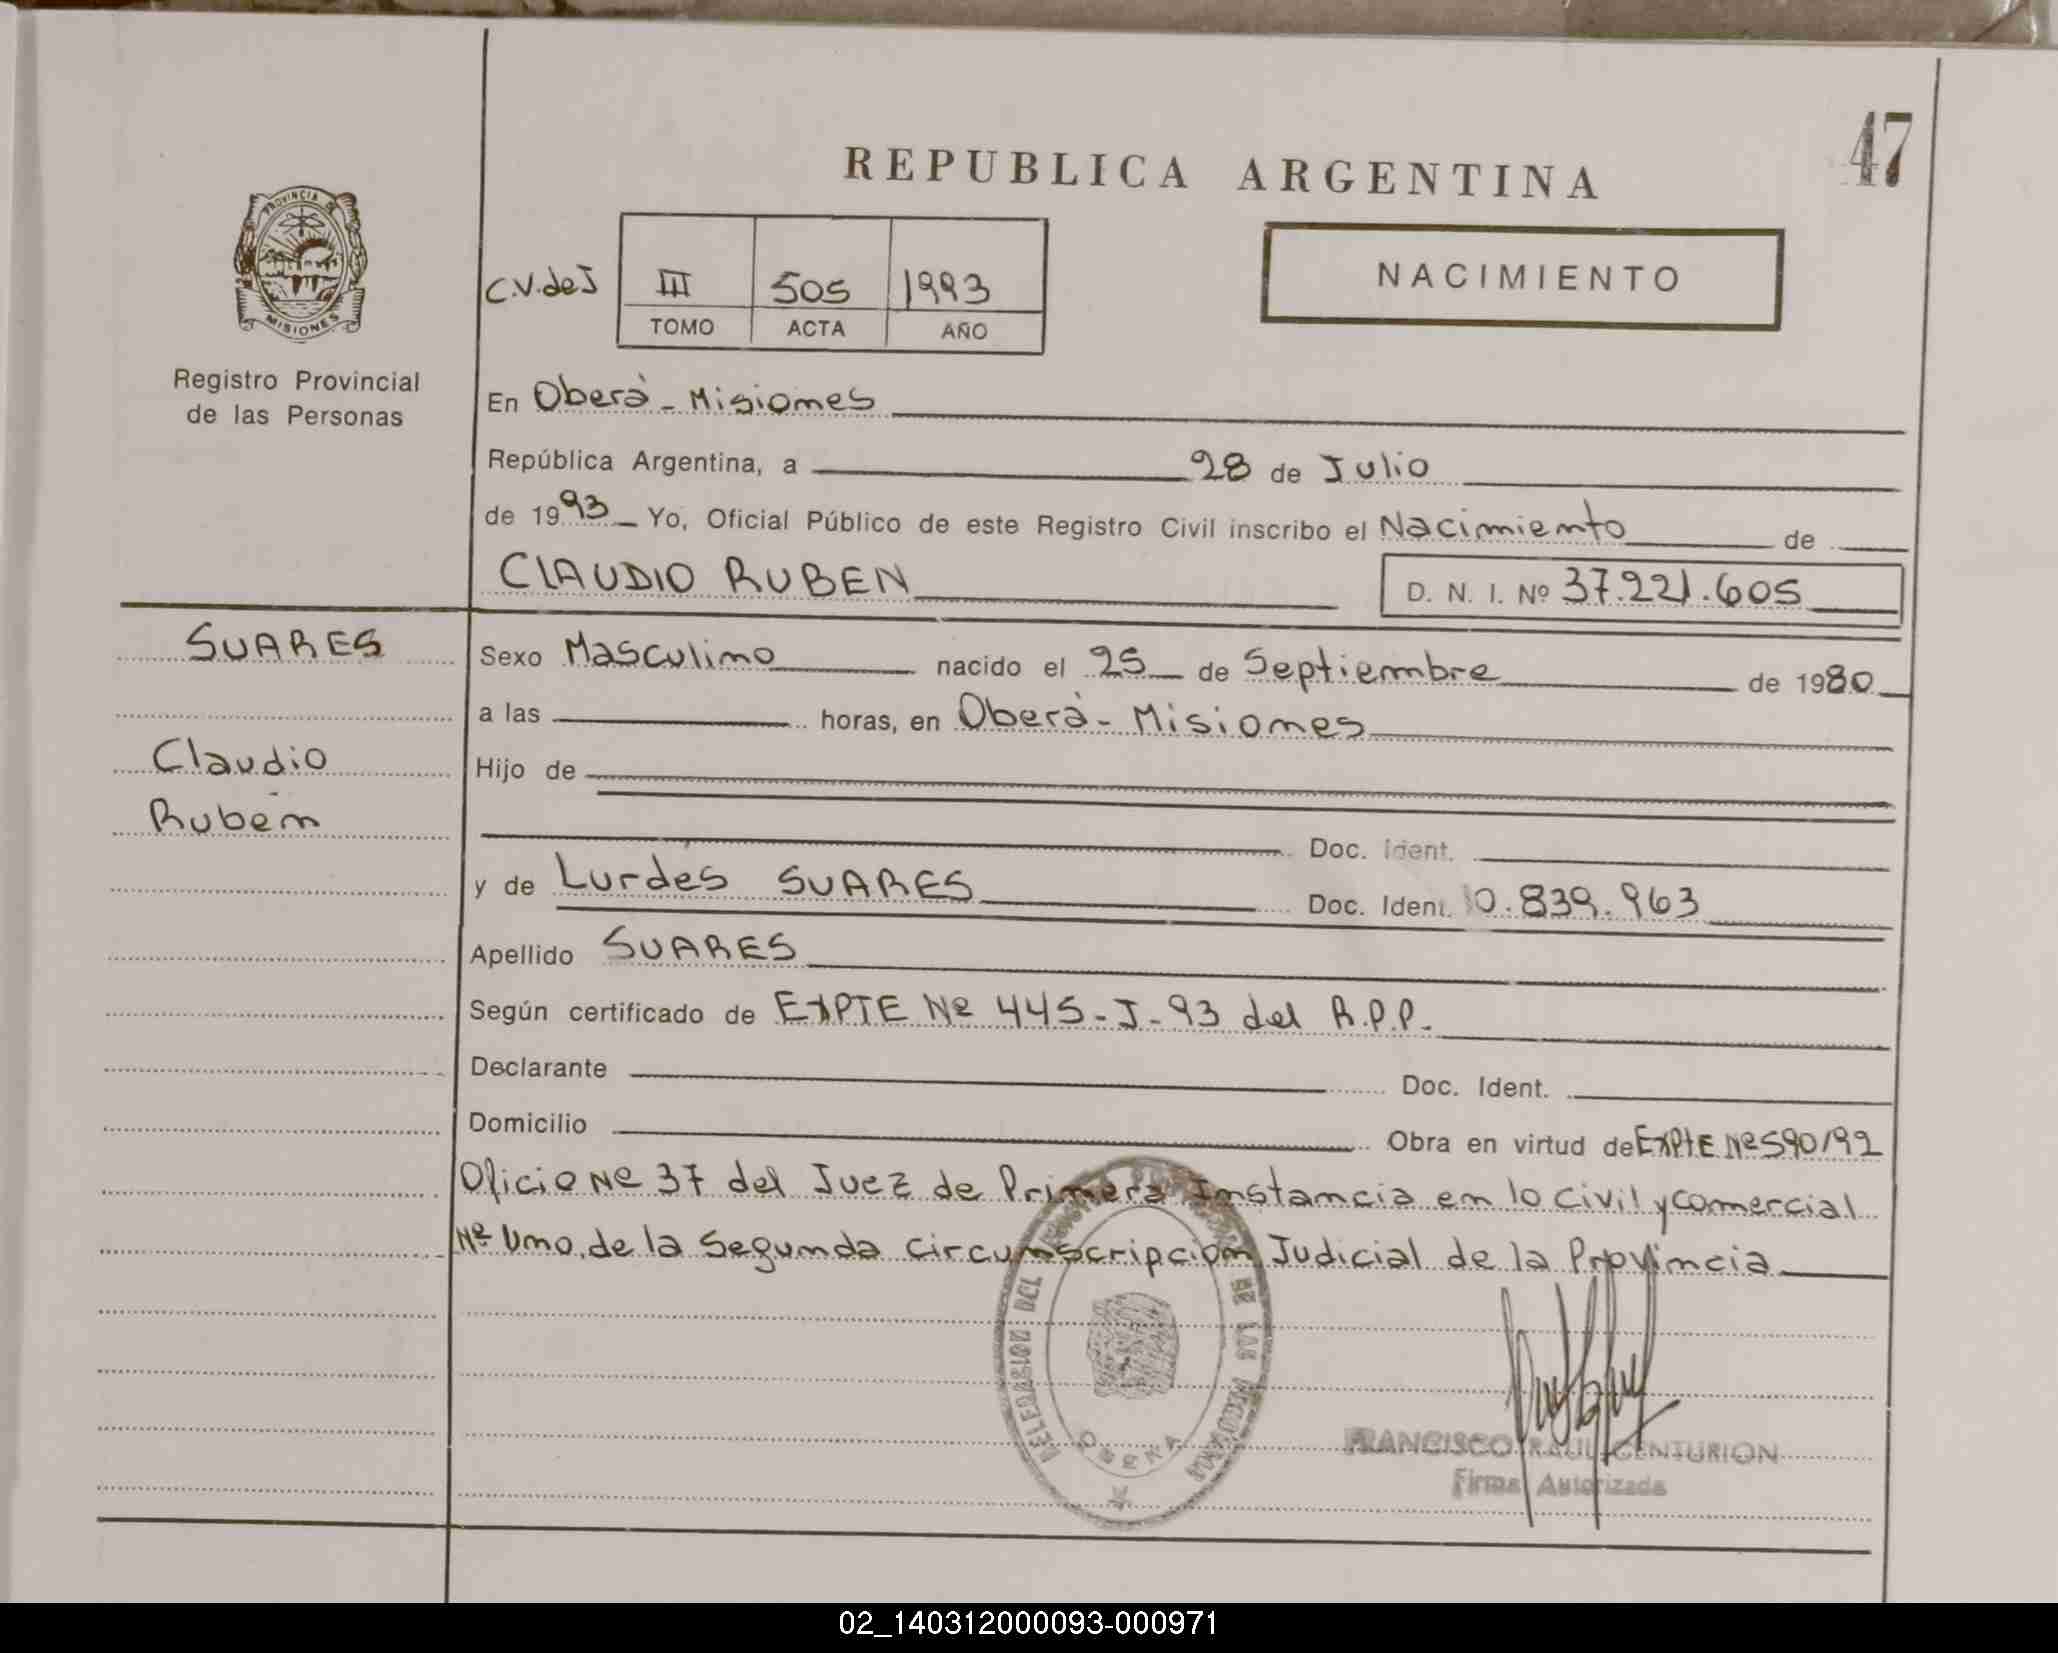 REPUBLICA ARGENTINA
47
PROVINCIA DE
MISIONES
Registro Provincial
de las Personas
C.V.deJ
III 505 1993
TOMO ACTA AÑO
NACIMIENTO
En Oberá - Misiones
República Argentina, a 28 de Julio
de 1993 Yo, Oficial Público de este Registro Civil inscribo el Nacimiento de
CLAUDIO RUBEN D. N. I. Nº 37.221.605
SUARES
Claudio
Rubén
Sexo Masculino nacido el 25 de Septiembre de 1980
a las horas, en Oberá - Misiones
Hijo de
Doc. Ident.
y de Lurdes SUARES Doc. Ident. 10.839.963
Apellido SUARES
Según certificado de EXPTE Nº 445-J-93 del R.P.P.
Declarante Doc. Ident.
Domicilio Obra en virtud de EXPtE Nº 590/92
Oficio Nº 37 del Juez de Primera Instancia en lo Civil y comercial
Nº Uno, de la Segunda Circunscripción Judicial de la Provincia
DELEGACION DEL DE LAS PERSONAS
OBERA
FRANCISCO RAUL CENTURION
Firma Autorizada
02_140312000093-000971